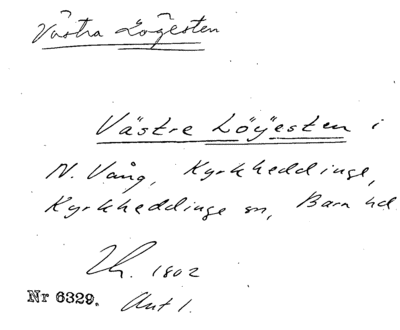 Västra Löÿesten
Västre Löÿesten i
N. Vång, Kyrkheddinge,
Kyrkheddinge sn, Bara hd
Th. 1802
Nr 6329. Akt 1.